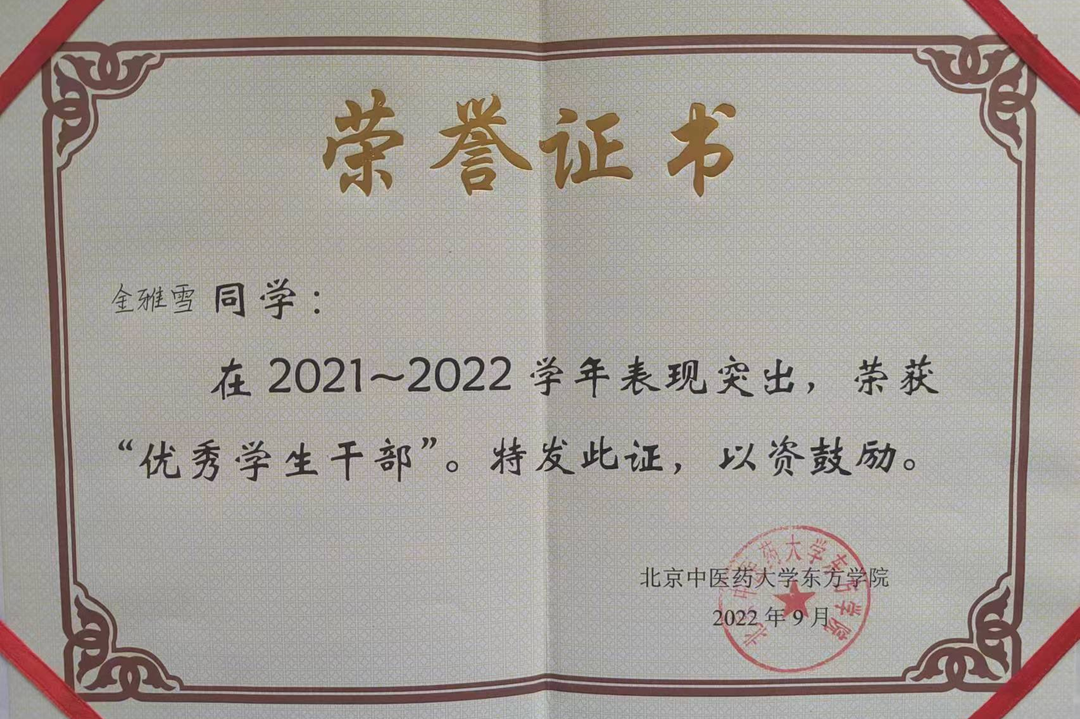 荣誉证书
金雅雪 同学：
在 2021~2022 学年表现突出，荣获
“优秀学生干部”。特发此证，以资鼓励。
北京中医药大学东方学院
2022 年 9 月
北京中医药大学东方学院